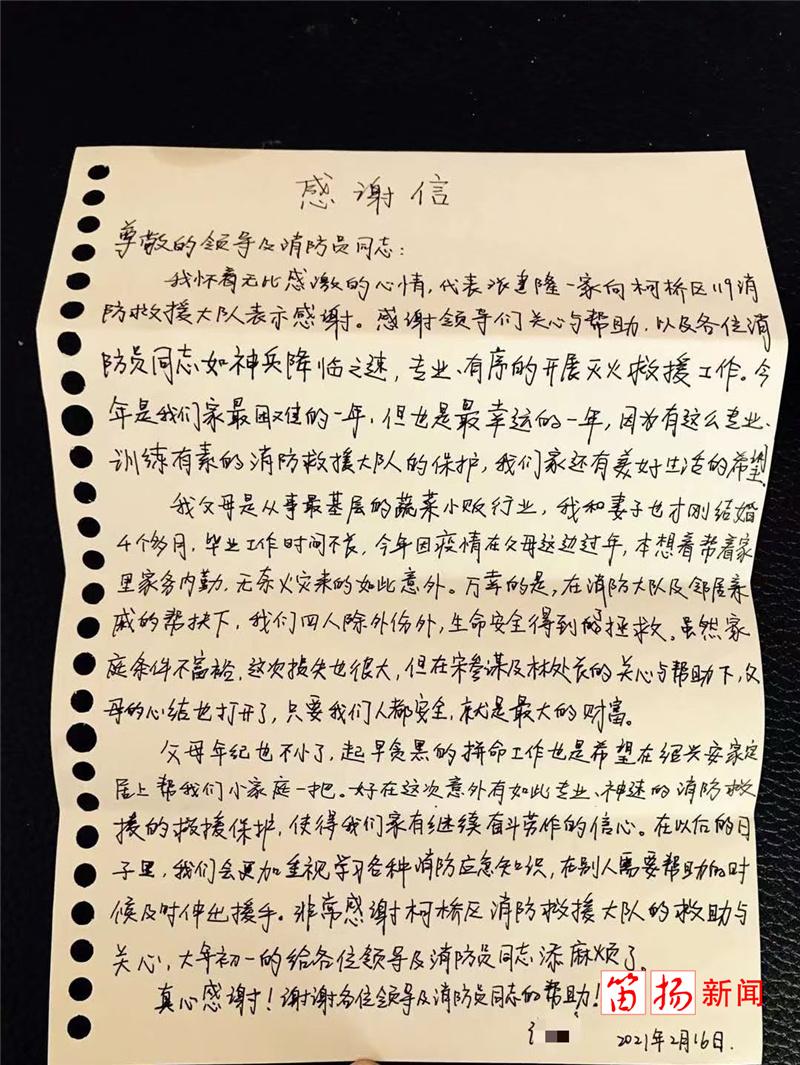 感谢信
尊敬的领导及消防员同志:
我怀着无比感激的心情,代表张建隆一家向柯桥区119消
防救援大队表示感谢。感谢领导们关心与帮助,以及各位消
防员同志如神兵降临之速,专业、有序的开展灭火救援工作。今
年是我们家最困难的一年,但也是最幸运的一年,因为有这么专业、
训练有素的消防救援大队的保护,我们家还有美好生活的希望
我父母是从事最基层的蔬菜小贩行业,我和妻子也才刚结婚
4个多月,毕业工作时间不长,今年因疫情在父母这边过年,本想着帮着家
里家务内勤,无奈火灾来的如此意外。万幸的是,在消防大队及邻居亲
戚的帮扶下,我们四人除外伤外,生命安全得到的拯救。虽然家
庭条件不富裕,这次损失也很大,但在宋参谋及林处长的关心与帮助下,父
母的心结也打开了,只要我们人都安全,就是最大的财富。
父母年纪也不小了,起早贪黑的拼命工作也是希望在绍兴安家定
居上帮我们小家庭一把。好在这次意外有如此专业、神速的消防救
援的救援保护,使得我们家有继续奋斗劳作的信心。在以后的日
子里,我们会更加重视学习各种消防应急知识,在别人需要帮助的时
候及时伸出援手。非常感谢柯桥区消防救援大队的救助与
关心,大年初一的给各位领导及消防员同志添麻烦了。
真心感谢!谢谢各位领导及消防员同志的帮助!
2021年2月16日.
笛扬新闻